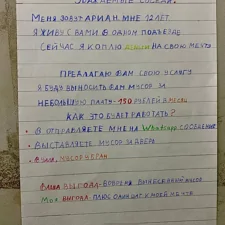 УВАЖАЕМЫЕ СОСЕДИ.
МЕНЯ ЗОВУТ АРИАН. МНЕ 12 ЛЕТ
Я ЖИВУ С ВАМИ В ОДНОМ ПОДЪЕЗДЕ
СЕЙЧАС Я КОПЛЮ ДЕНЬГИ НА СВОЮ МЕЧТУ.
ПРЕДЛАГАЮ ВАМ СВОЮ УСЛУГУ
Я БУДУ ВЫНОСИТЬ ВАМ МУСОР ЗА
НЕБОЛЬШУЮ ПЛАТУ - 150 РУБЛЕЙ В МЕСЯЦ
КАК ЭТО БУДЕТ РАБОТАТЬ?
ОТПРАВЛЯЕТЕ МНЕ НА WhatsApp СООБЩЕНИЕ
ВЫСТАВЛЯЕТЕ МУСОР ЗА ДВЕРЬ
МУСОР УБРАН
ВАША ВЫГОДА - ВОВРЕМЯ ВЫНЕСЕННЫЙ МУСОР
МОЯ ВЫГОДА - ПЛЮС ОДИН ШАГ К МОЕЙ МЕЧТЕ